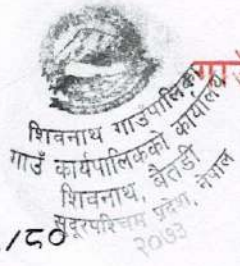 गाउँ
शिवनाथ गाउँपालिका
गाउँ कार्यपालिकाको कार्यालय
शिवनाथ, बैतडी
सुदूरपश्चिम प्रदेश, नेपाल
२०७३
/८०